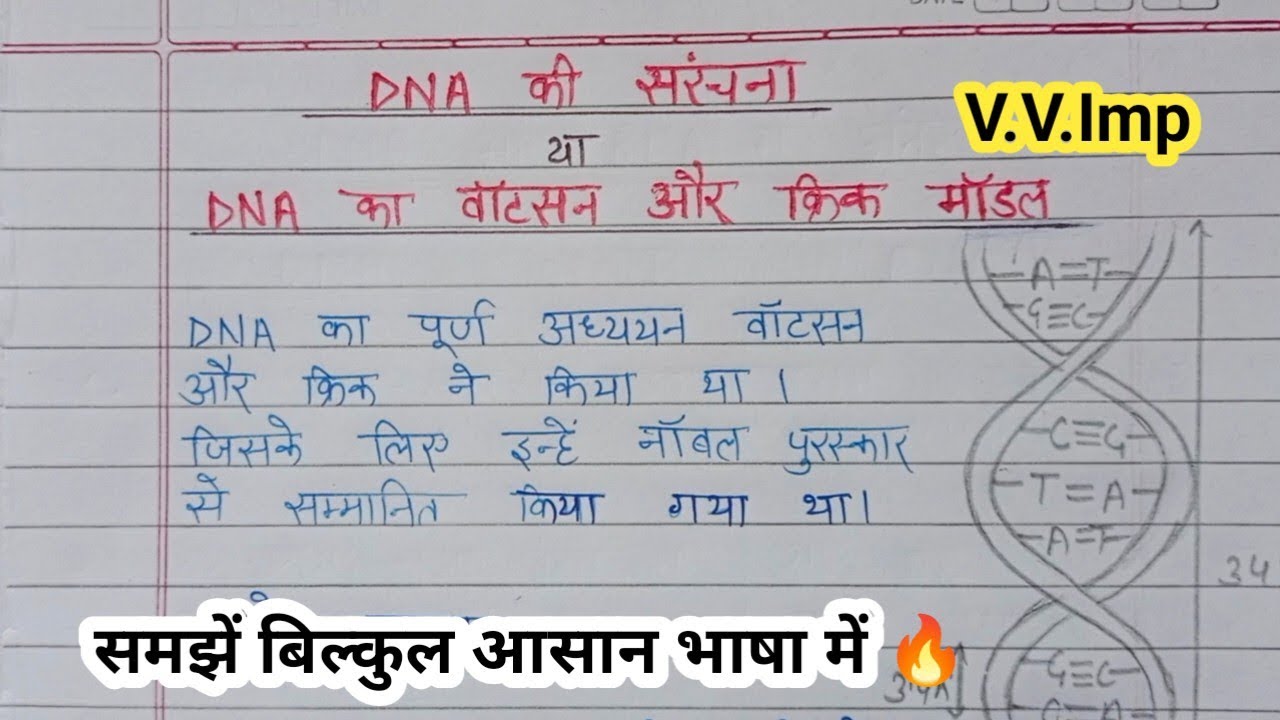 DNA की सरंचना
V.V.Imp
या
DNA का वॉटसन और क्रिक मॉडल
DNA का पूर्ण अध्ययन वॉटसन
और क्रिक ने किया था ।
जिसके लिए इन्हें नॉबल पुरस्कार
से सम्मानित किया गया था।
A=T
G≡C
C≡G
T=A
A=T
34
समझें बिल्कुल आसान भाषा में 🔥
3.4A
G≡C